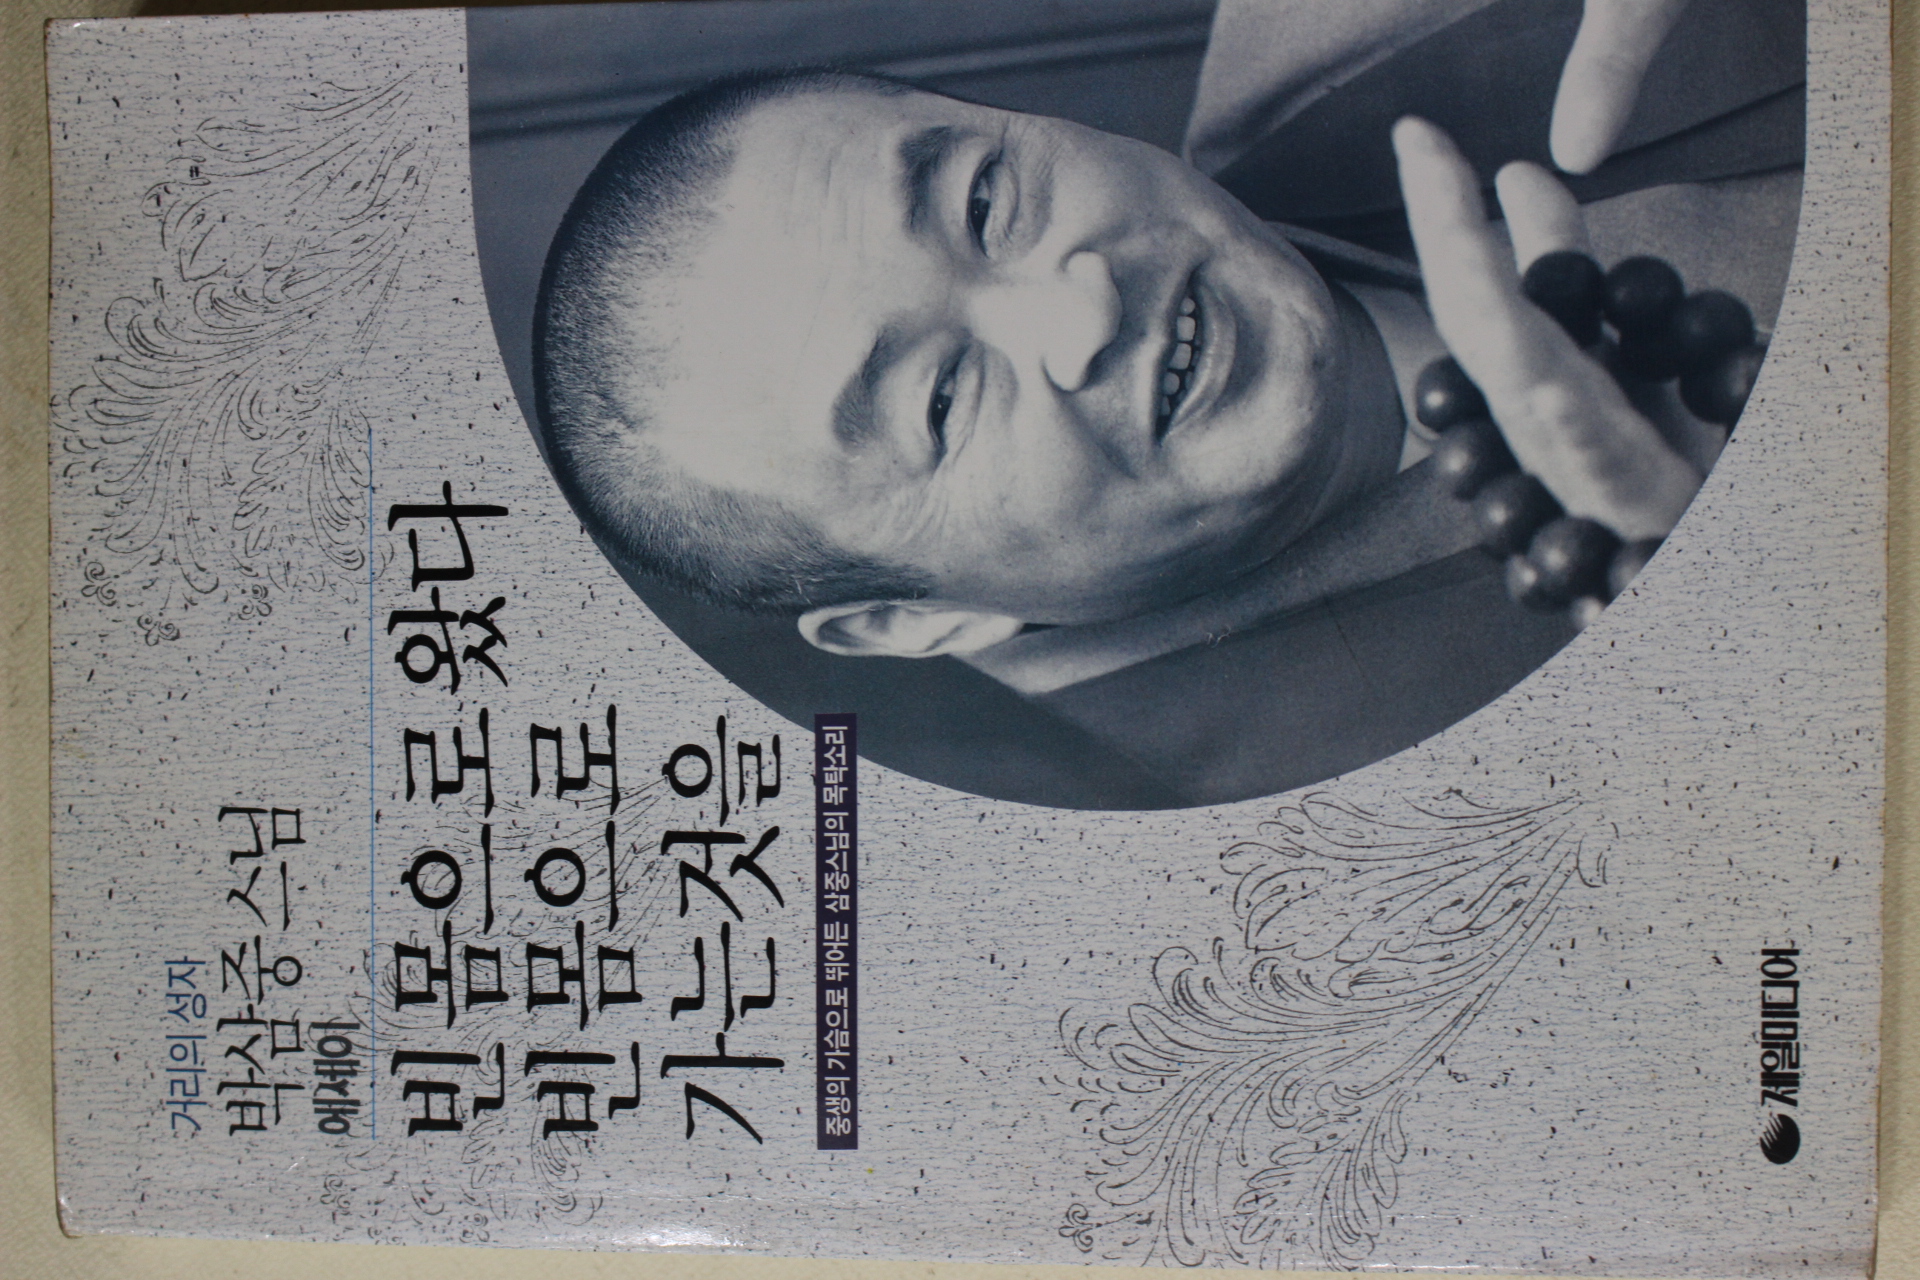 거리의 성자
박삼중스님
에세이
빈 몸으로 왔다
빈 몸으로
가는것을
중생의 가슴으로 뛰어든 삼중스님의 목탁소리
제일미디어